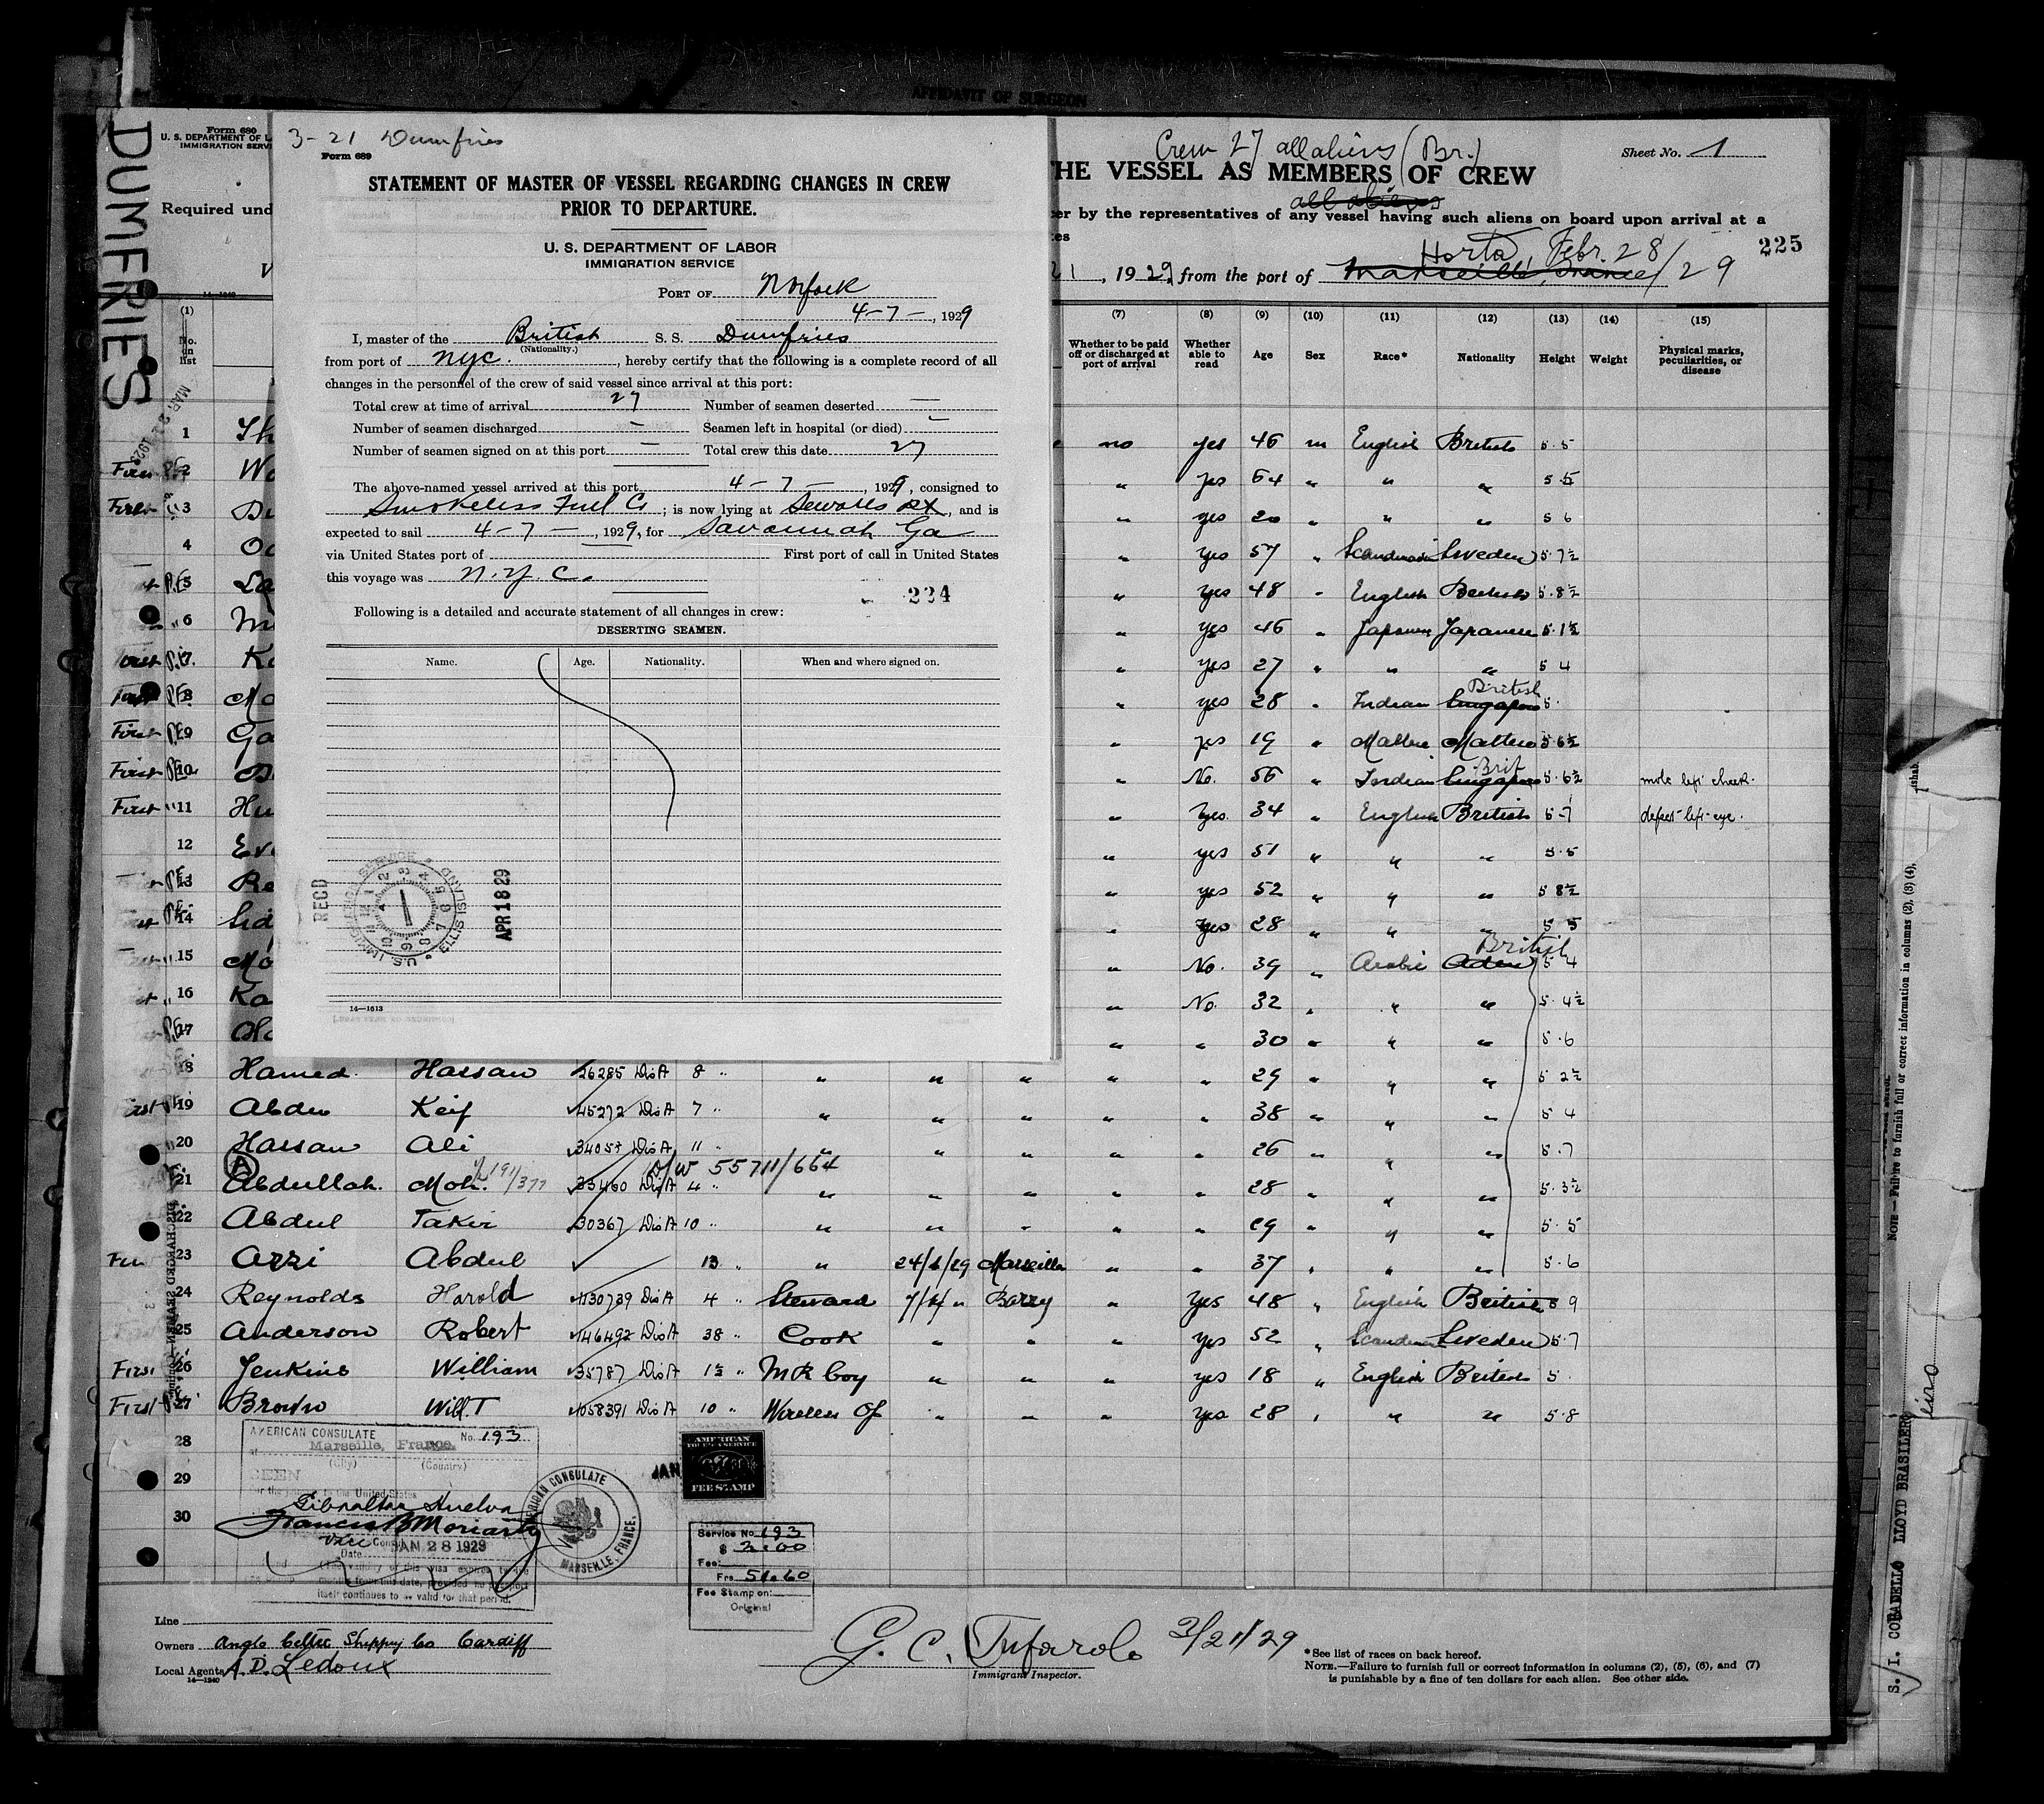 AFFIDAVIT OF SURGEON
DUMFRIES
Form 680
U. S. DEPARTMENT OF L
IMMIGRATION SERVI
Required und
3-21 Dumfries
Form 689
STATEMENT OF MASTER OF VESSEL REGARDING CHANGES IN CREW
PRIOR TO DEPARTURE.
U. S. DEPARTMENT OF LABOR
IMMIGRATION SERVICE
PORT OF Norfolk
4-7-, 1929
I, master of the British S. S. Dumfries
(Nationality.)
from port of nyc., hereby certify that the following is a complete record of all
changes in the personnel of the crew of said vessel since arrival at this port:
Total crew at time of arrival 27 Number of seamen deserted —
Number of seamen discharged — Seamen left in hospital (or died) —
Number of seamen signed on at this port — Total crew this date 27
The above-named vessel arrived at this port 4-7-, 1929, consigned to
Smokeless Fuel Co; is now lying at Sewalls Pt, and is
expected to sail 4-7-, 1929, for Savannah Ga
via United States port of First port of call in United States
this voyage was N.Y.C.
224
Following is a detailed and accurate statement of all changes in crew:
DESERTING SEAMEN.
Name. Age. Nationality. When and where signed on.
RECD
U.S. IMMIGRATION SERVICE ELLIS ISLAND
APR 18 29
14—1613
Crew 27 all aliens (Br.)
Sheet No. 1
HE VESSEL AS MEMBERS OF CREW
all aliens
er by the representatives of any vessel having such aliens on board upon arrival at a
tes
225
Horta Febr. 28/29
21, 1929, from the port of Marseille, France
(1) (7) (8) (9) (10) (11) (12) (13) (14) (15)
No. on list
Whether to be paid off or discharged at port of arrival
Whether able to read
Age Sex Race* Nationality Height Weight
Physical marks, peculiarities, or disease
1 Th no yes 46 m English British 5.5
First 2 Wo " yes 64 " " " 5 5
First 3 " yes 20 " " " 5 6
4 " yes 57 " Sweden 5.7½
5 La " yes 48 " English British 5.8½
6 " yes 46 " Japanese Japanese 5.1½
7 Ka " yes 27 " " " 5 4
First 8 Mo " yes 28 " Indian Singapore British 5.
First 9 Ga " yes 19 " Maltese Maltese 5 6½
First 10 " No. 56 " Indian Singapore Brit 5.6½ mole left cheek.
First 11 Hu " Yes. 34 " English British 5-7 defect left eye.
12 Ev " yes 51 " " " 5.5
13 Re " yes 52 " " " 5 8½
14 " Yes 28 " " " 5 5
15 Mo " No. 39 " Arabic Aden British 5 4
16 Ka " No. 32 " " " 5.4½
17 " " 30 " " " 5.6
18 Hamed Hassan 26285 DisA 8 " " " " " " 29 " " " 5 2½
19 Abdu Keif 45272 DisA 7 " " " " " " 38 " " " 5 4
20 Hassan Ali 34053 DisA 11 " " " " " 26 " " " 5.7
D/W 55711/664
21 Abdullah. Moh. 33460 DisA 4 " " " " " " 28 " " " 5.3½
22 Abdul Taker 30367 DisA 10 " " " " " " 29 " " " 5.5
23 Azzi Abdul 13 " " 24/1/29 Marseilles " " 37 " " " 5.6
24 Reynolds Harold 1130739 DisA 4 " Steward 7/4 " Barry " Yes 48 " English British 5 9
25 Anderson Robert 146492 DisA 38 " Cook " " " yes 52 " Sweden 5.7
First 26 Jenkins William 35787 DisA 1½ " MR boy " " " yes 18 " English British 5.
First 27 Brown Will.T 1058391 DisA 10 " Wireless Of " " " yes 28 " " " 5.8
28
29
30
AMERICAN CONSULATE No. 193
at Marseille, France.
(City) (Country)
SEEN
For the journey to the United States
Gibraltar Huelva
Francis B Moriarty
Vice Consul
Date JAN 28 1929
AMERICAN CONSULATE MARSEILLE, FRANCE.
JAN
AMERICAN FOREIGN SERVICE
FEE STAMP
Service No 193
$ 2.00
Fee:
Frs 51.60
Fee Stamp on:
Original
Line
Owners Anglo Celtic Shipping Co Cardiff
Local Agents A. D. Ledoux
14—1240
G. C. Tufarolo 3/21/29
Immigrant Inspector.
*See list of races on back hereof.
NOTE.—Failure to furnish full or correct information in columns (2), (5), (6), and (7)
is punishable by a fine of ten dollars for each alien. See other side.
NOTE — Failure to furnish full or correct information in columns (2), (3) (4),
LLOYD BRASILERO
S. I. CORBADELLO